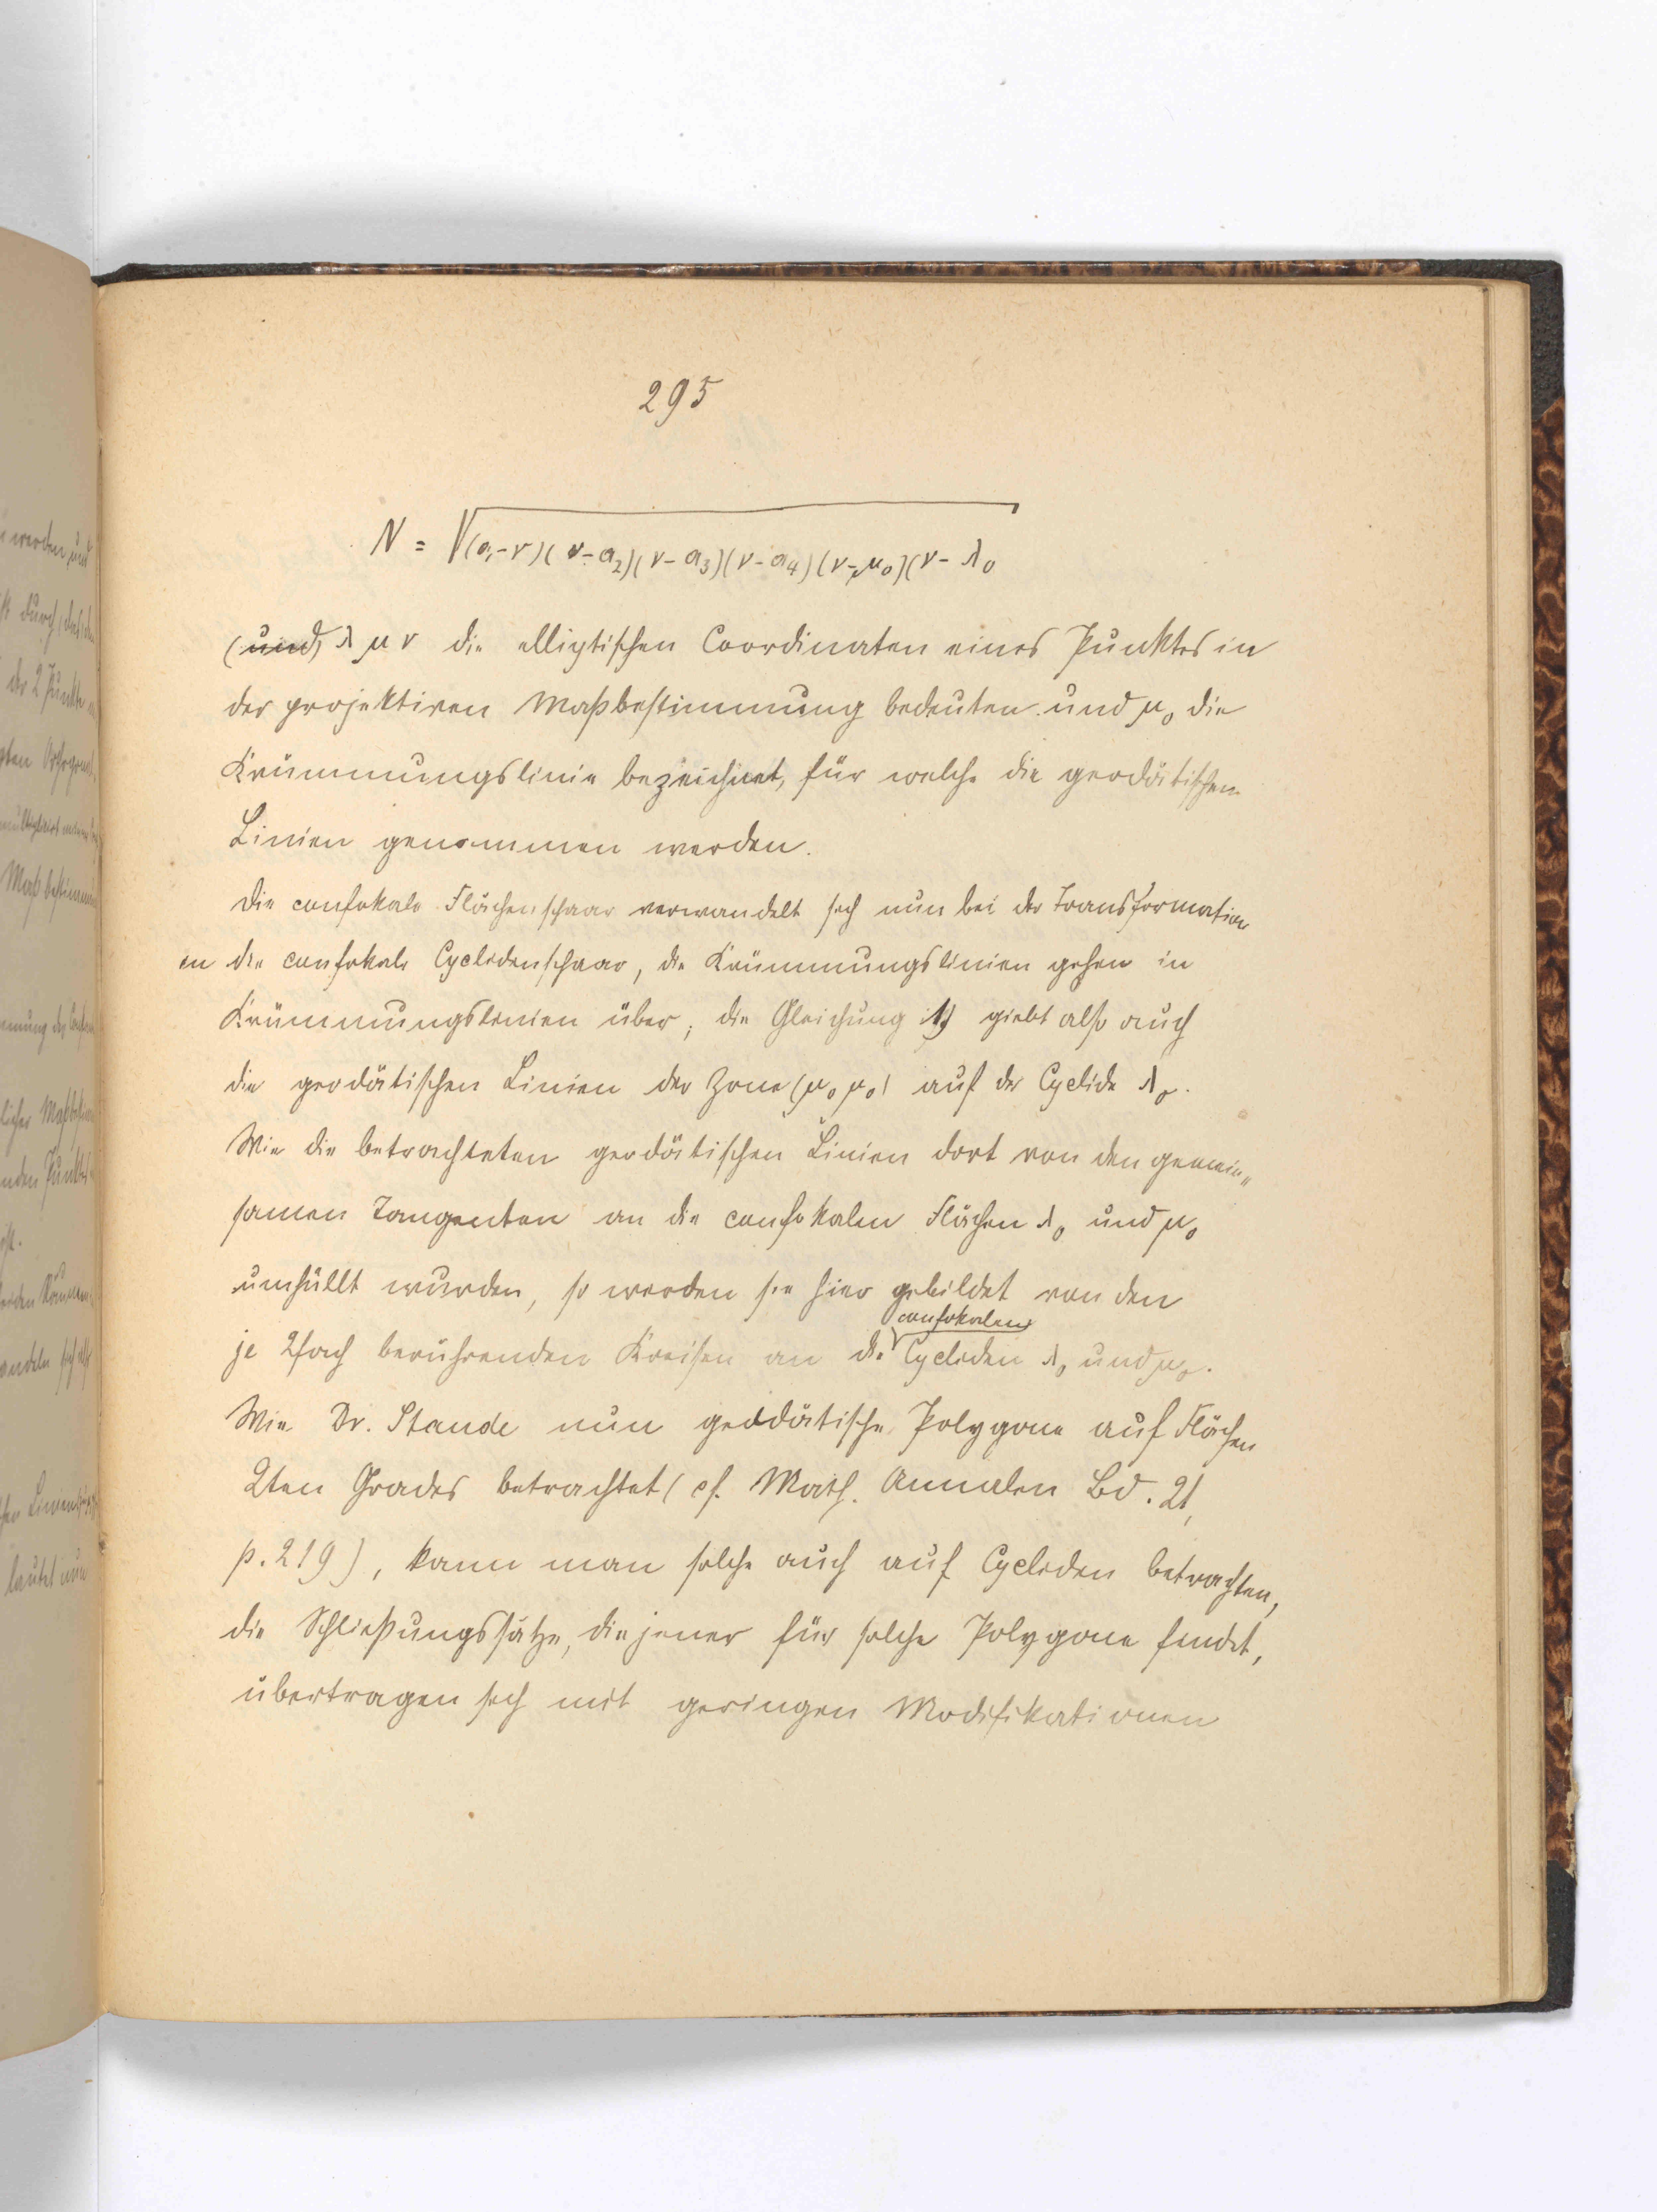 295
N = √(a₁-ν)(ν-a₂)(ν-a₃)(ν-a₄)(ν-μ₀)(ν-λ₀
(und) λ μ ν die elliptischen Coordinaten eines Punktes in
der projektiven Maßbestimmung bedeuten und μ₀ die
Krümmungslinie bezeichnet, für welche die geodätischen
Linien genommen werden.
Die confokale Flächenschaar verwandelt sich nun bei der Transformation
in die confokale Cyclidenschaar, die Krümmungslinien gehen in
Krümmungslinien über, die Gleichung 1) giebt also auch
die geodätischen Linien der Zone (μ₀ μ₀) auf der Cyclide λ₀.
Wie die betrachteten geodätischen Linien dort von den gemein-
samen Tangenten an die confokalen Flächen λ₀ und μ₀
umhüllt wurden, so werden sie hier gebildet von den
confokalen
je 2fach berührenden Kreisen an die Cycliden λ₀ und μ₀.
Wie Dr. Staude nun geodätische Polygone auf Flächen
2ten Grades betrachtet (cf. Math. Annalen Bd. 21,
p. 219), kann man solche auch auf Cycliden betrachten,
die Schließungssätze, die jener für solche Polygone findet,
übertragen sich mit geringen Modifikationen